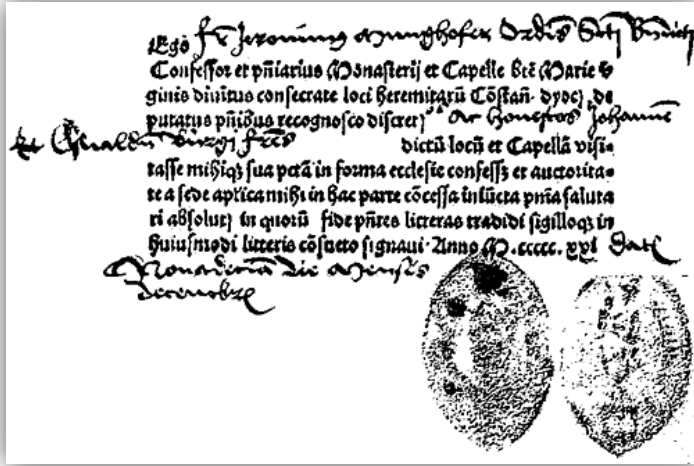 Ego fr̄ Jeronimus Munghofer Ordīs Scti Bn̄dicti
Confessor et pn̄iarius Monasterij et Capelle btē Marie v
ginis diuītus consecrate loci heremitarū Cōstan̄. dyoc; de
putatus pn̄ibus recognosco discret; ac honestos Johannē
et Osualdū frēs dictū locū et Capellā visi-
tasse mihiq; sua pctā in forma ecclesie confess; et auctorita-
te a sede aplica mihi in hac parte cōcessa iniūcta pn̄ia saluta
ri absolut; in quorū fidē pn̄tes litteras tradidi sigilloq; in
huiusmodi litteris cōsueto signaui. Anno M.ccccc.xxi Datē
die Mensis
decembris